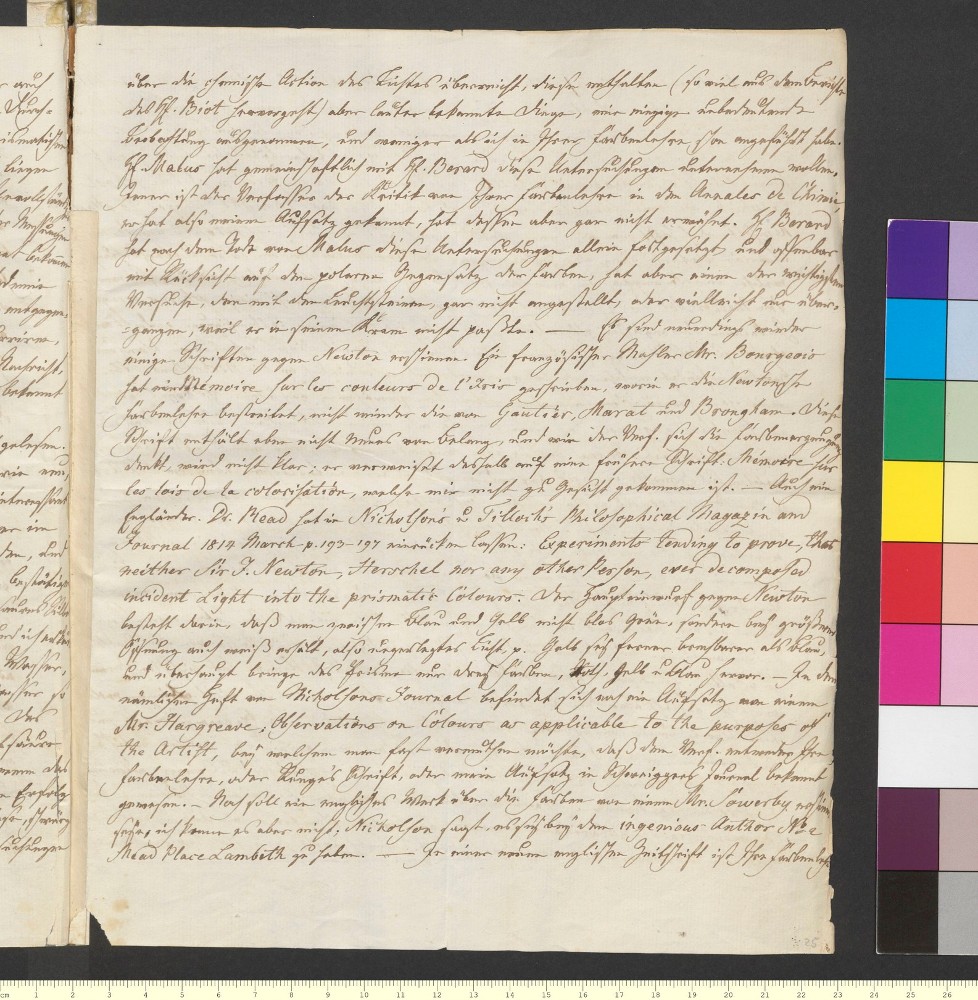 über die chemische Action des Lichtes überreicht, diese enthalten (so viel aus dem Berichte
des H. Biot hervorgeht) aber lauter bekannte Dinge, nur einige unbedeutende
Beobachtung ausgenommen, und weniger als ich in Ihrer Farbenlehre schon angeführt habe.
H. Malus hat gemeinschaftlich mit H. Berard diese Untersuchungen unternehmen wollen,
Jener ist der Verfasser der Kritik von Ihrer Farbenlehre in den Annales de Chimie,
er hat also meinen Aufsatz gekannt, hat dessen aber gar nicht erwähnt. H. Berard
hat nach dem Tode von Malus diese Untersuchungen allein fortgesetzt und offenbar
mit Rücksicht auf den polaren Gegensatz der Farben, hat aber einen der wichtigsten
Versuche, den mit den Leuchtsteinen, gar nicht angestellt, oder vielleicht nur über-
=gangen, weil er in seinen Kram nicht paßte. — Es sind neuerdings wieder
einige Schriften gegen Newton erschienen. Ein französischer Mahler Mr. Bourgeois
hat ein Mémoire sur les couleurs de l'Iris geschrieben, worin er die Newtonsche
Farbenlehre bestreitet, nicht minder die von Gautier, Marat und Brougham. Diese
Schrift enthält eben nicht Neues von Belang, und wie der Verf. sich die Farbenerzeugung
denkt, wird nicht klar; er verweiset deshalb auf eine frühere Schrift: Mémoire sur
les lois de la colorisation, welche mir nicht zu Gesicht gekommen ist. — Auch ein
Engländer. Dr. Read hat in Nicholson's u Tilloch's Philosophical Magazin and
Journal 1814 March p. 193-197 einrücken lassen: Experiments tending to prove, that
neither Sir I. Newton, Herschel nor any other Person, ever decomposed
incident Light into the prismatic Colours. Der Haupteinwurf gegen Newton
besteht darin, daß man zwischen Blau und Gelb nicht blos Grün, sondern bey größerer
Öffnung auch weiß erhält, also unzerlegtes Licht, p. Gelb sey ferner brechbarer als blau,
und überhaupt bringe das Prisma nur drey Farben, Roth, Gelb u Blau hervor. — In dem
nämlichen Heft von Nicholsons Journal befindet sich noch ein Aufsatz von einem
Mr. Hargreave; Observations on Colours as applicable to the purposes of
the Artist, bey welchem man fast vermuthen möchte, daß dem Verf. entweder Ihre
Farbenlehre, oder Runge's Schrift, oder mein Aufsatz in Schweiggers Journal bekannt
gewesen. — Noch soll ein englisches Werk über die Farben von einem Mr. Sowerby erschienen
seyn, ich kenne es aber nicht; Nicholson sagt, es sey bey dem ingenious Author No 2
Mead Place Lambeth zu haben. — In einer neuen englischen Zeitschrift ist Ihre Farbenlehre